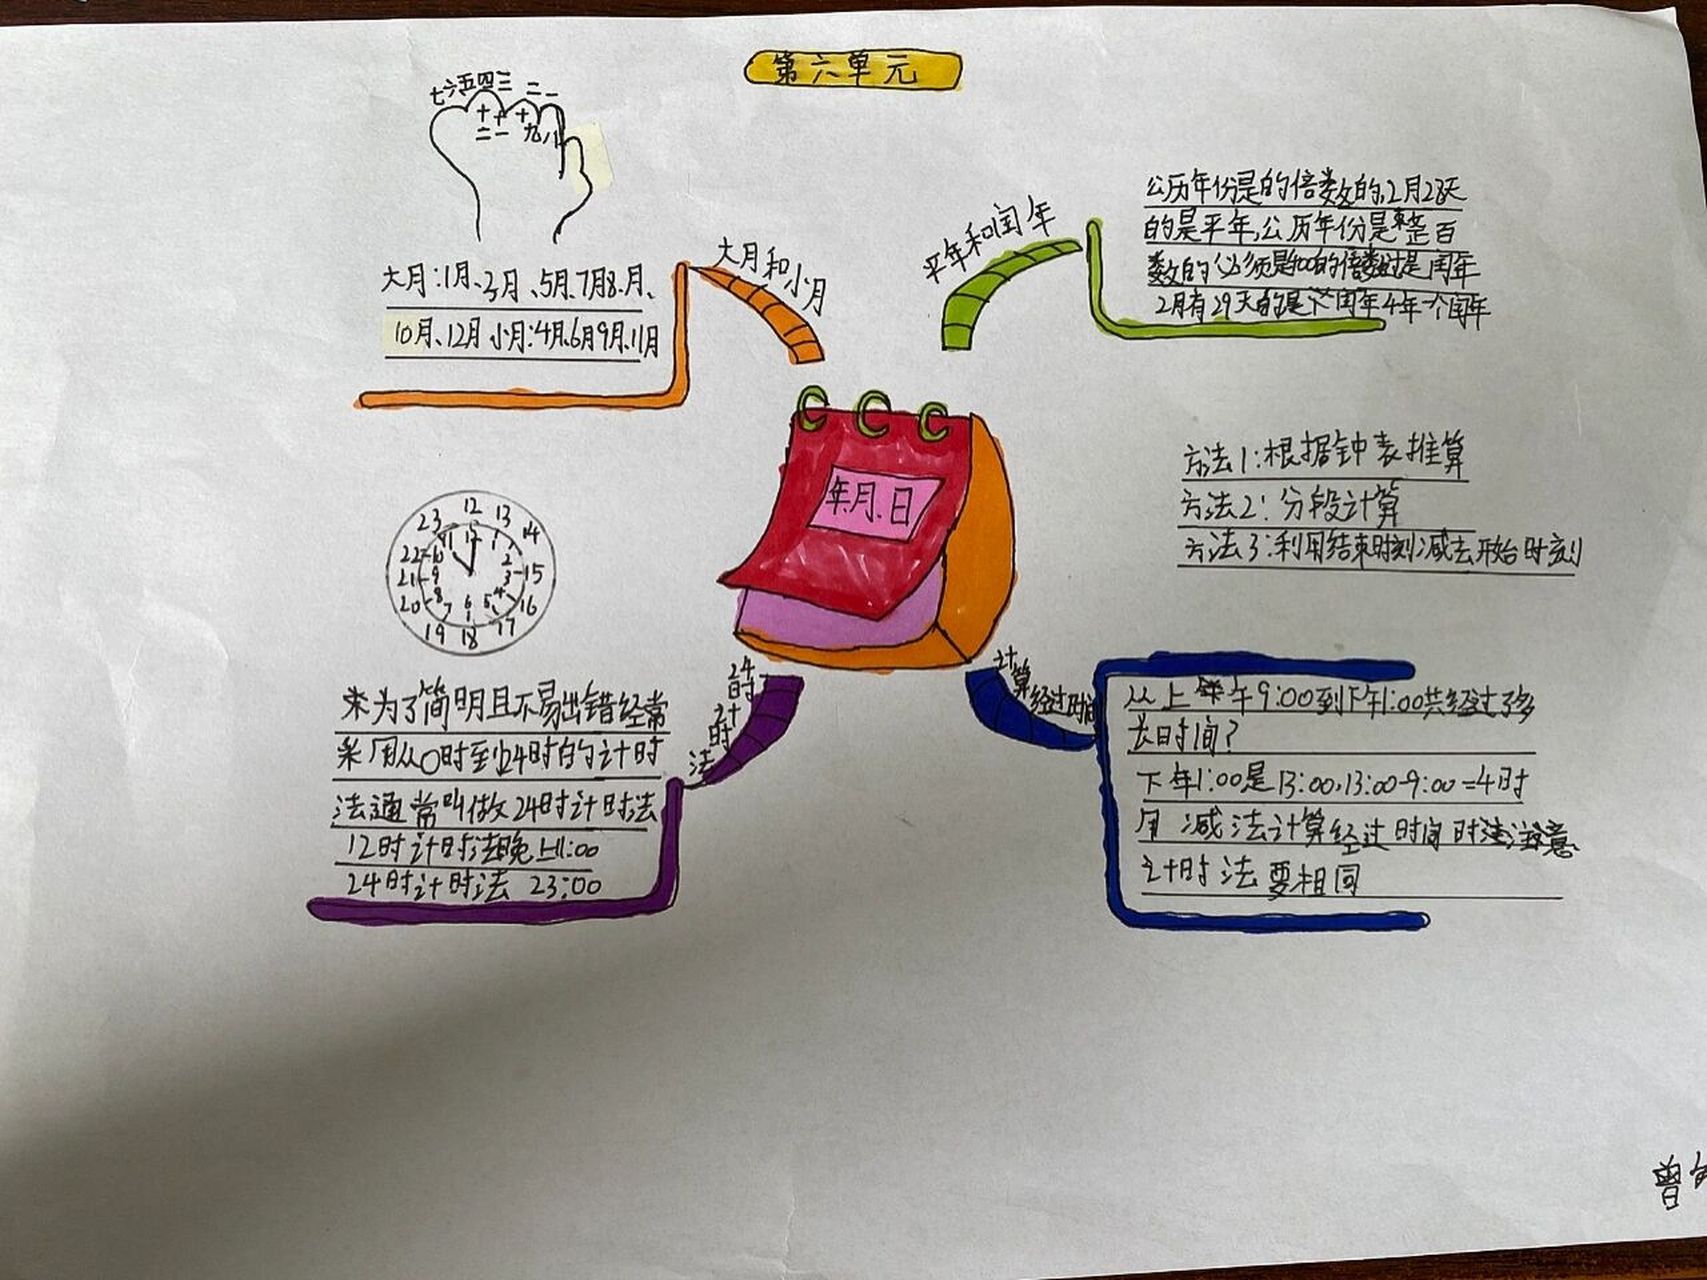 第六单元
七六五四三 二一
十十十
二一 九八
大月和小月
大月:1月、3月、5月、7月8月、
10月、12月 小月:4月、6月9月、11月
平年和闰年
公历年份是的倍数的,2月28天
的是平年,公历年份是整百
数的必须是400的倍数才是闰年
2月有29天的是闰年4年一个闰年
年.月.日
方法1:根据钟表推算
方法2:分段计算
方法3:利用结束时刻减去开始时刻
12 13 14 15 16 17 18 19 20 21 22 23
12 1 2 3 4 5 6 7 8 9 10 11
24时计时法
来为了简明且不易出错经常
采用从0时至24时的计时
法通常叫做24时计时法
12时计时法晚上11:00
24时计时法 23:00
计算经过时间
从上午9:00到下午1:00共经过了多
长时间?
下午1:00是13:00,13:00-9:00=4时
用减法计算经过时间时注意
计时法要相同
曾